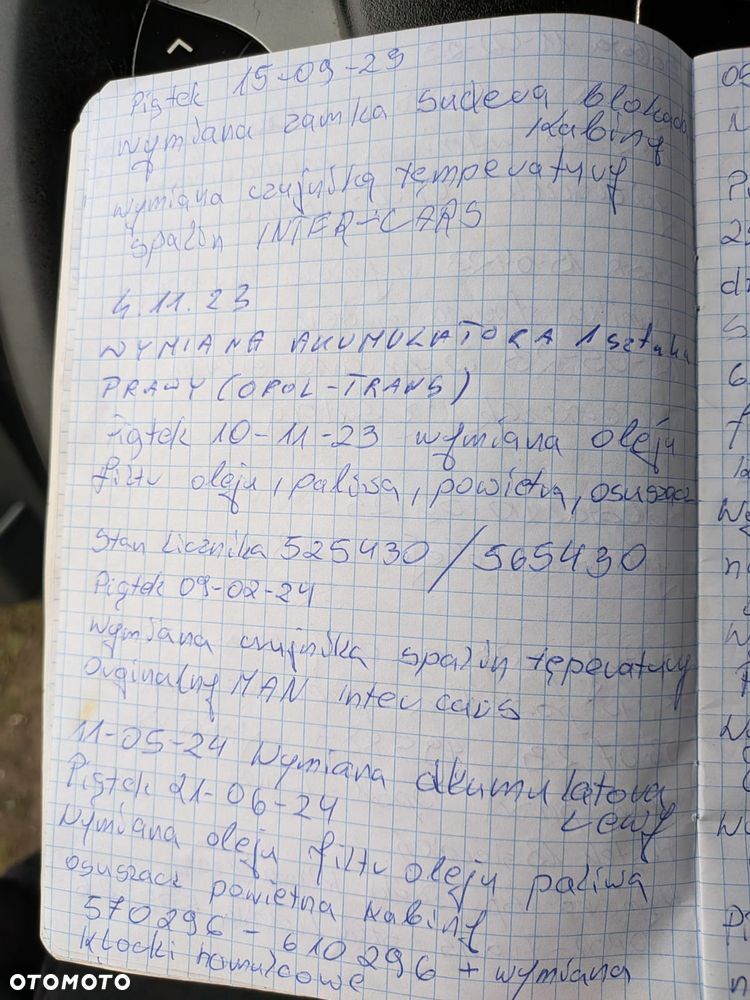 Piątek 15-09-23
Wymiana zamka Sudeva blokada
Kabiny
Wymiana czujnika temperatury
spalin INTER-CARS
4.11.23
WYMIANA AKUMULATORA 1 sztuka
PRAWY (OPOL-TRANS)
Piątek 10-11-23 wymiana oleju
filtr oleju, paliwa, powietrza, osuszacz
Stan Licznika 525430/565430
Piątek 09-02-24
Wymiana czujnika spalin tęperatury
Orginalny MAN inter cars
11-05-24 Wymiana akumulatora
Lewy
Piątek 21-06-24
Wymiana oleju filtr oleju paliwa
osuszacz powietrza kabiny
570296 - 610296 + wymiana
Klocki hamulcowe
09
N
P
29
dz
S
6
f
W
n
W
W
Pi
n
OTOMOTO